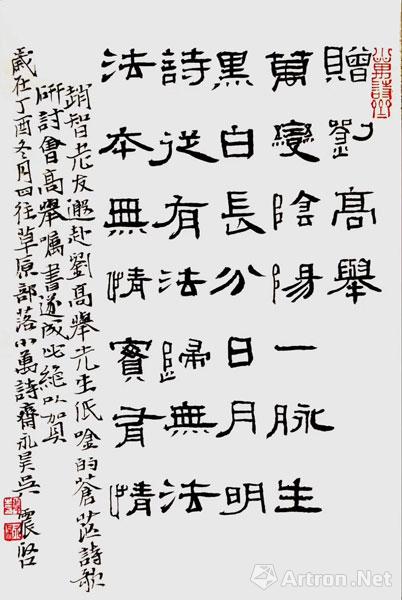 贈劉高舉
萬變陰陽一脉生
黑白長分日月明
詩從有法歸無法
法本無情實有情
趙智老友邀赴劉高舉先生低唫的蒼茫詩歌
研討會高舉囑書遂成此絶以賀
歲在丁酉冬月四往草原部落小萬詩齋永昊吳震啓
Artron.Net